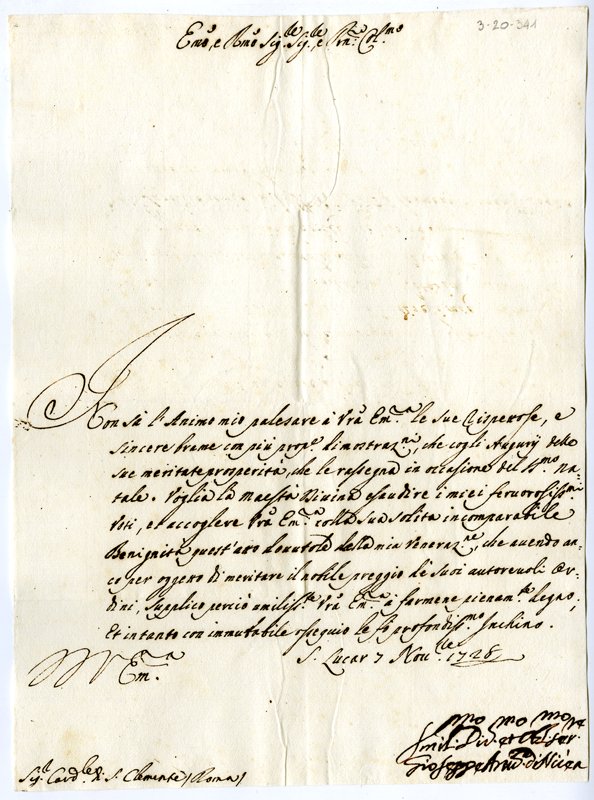 3-20-341
Emo, e Rmo Sig.le Sig.le, e Prne Colmo
Non sà l'Animo mio palesare à Vra Em.a le sue ossequiose, e
sincere brame con più prop.e dimostraz.ni, che cogli Augurij delle
sue meritate prosperità, che le rassegna in occasione del S.mo na-
tale. Voglia la Maestà Divina esaudire i miei fervorosissi.mi
Voti, et accogliere Vra Em.a colla sua solita incomparabile
Benignità quest'atto dovutole della mia Veneraz.ne, che avendo an-
co per oggetto di meritare il nobile preggio de suoi autorevoli Or-
dini, supplico perciò umiliss.te Vra Em.a à farmene pienam.te degno;
Et intanto con immutabile ossequio le fò profondiss.mo Inchino.
S. Lucar 7 Nov.le 1728
Em.a
Umil.mo Div.mo et Obl.mo Ser.re
Giuseppe Arciv.o di Nicea
Sig.r Card.le di S. Clemente (Roma)